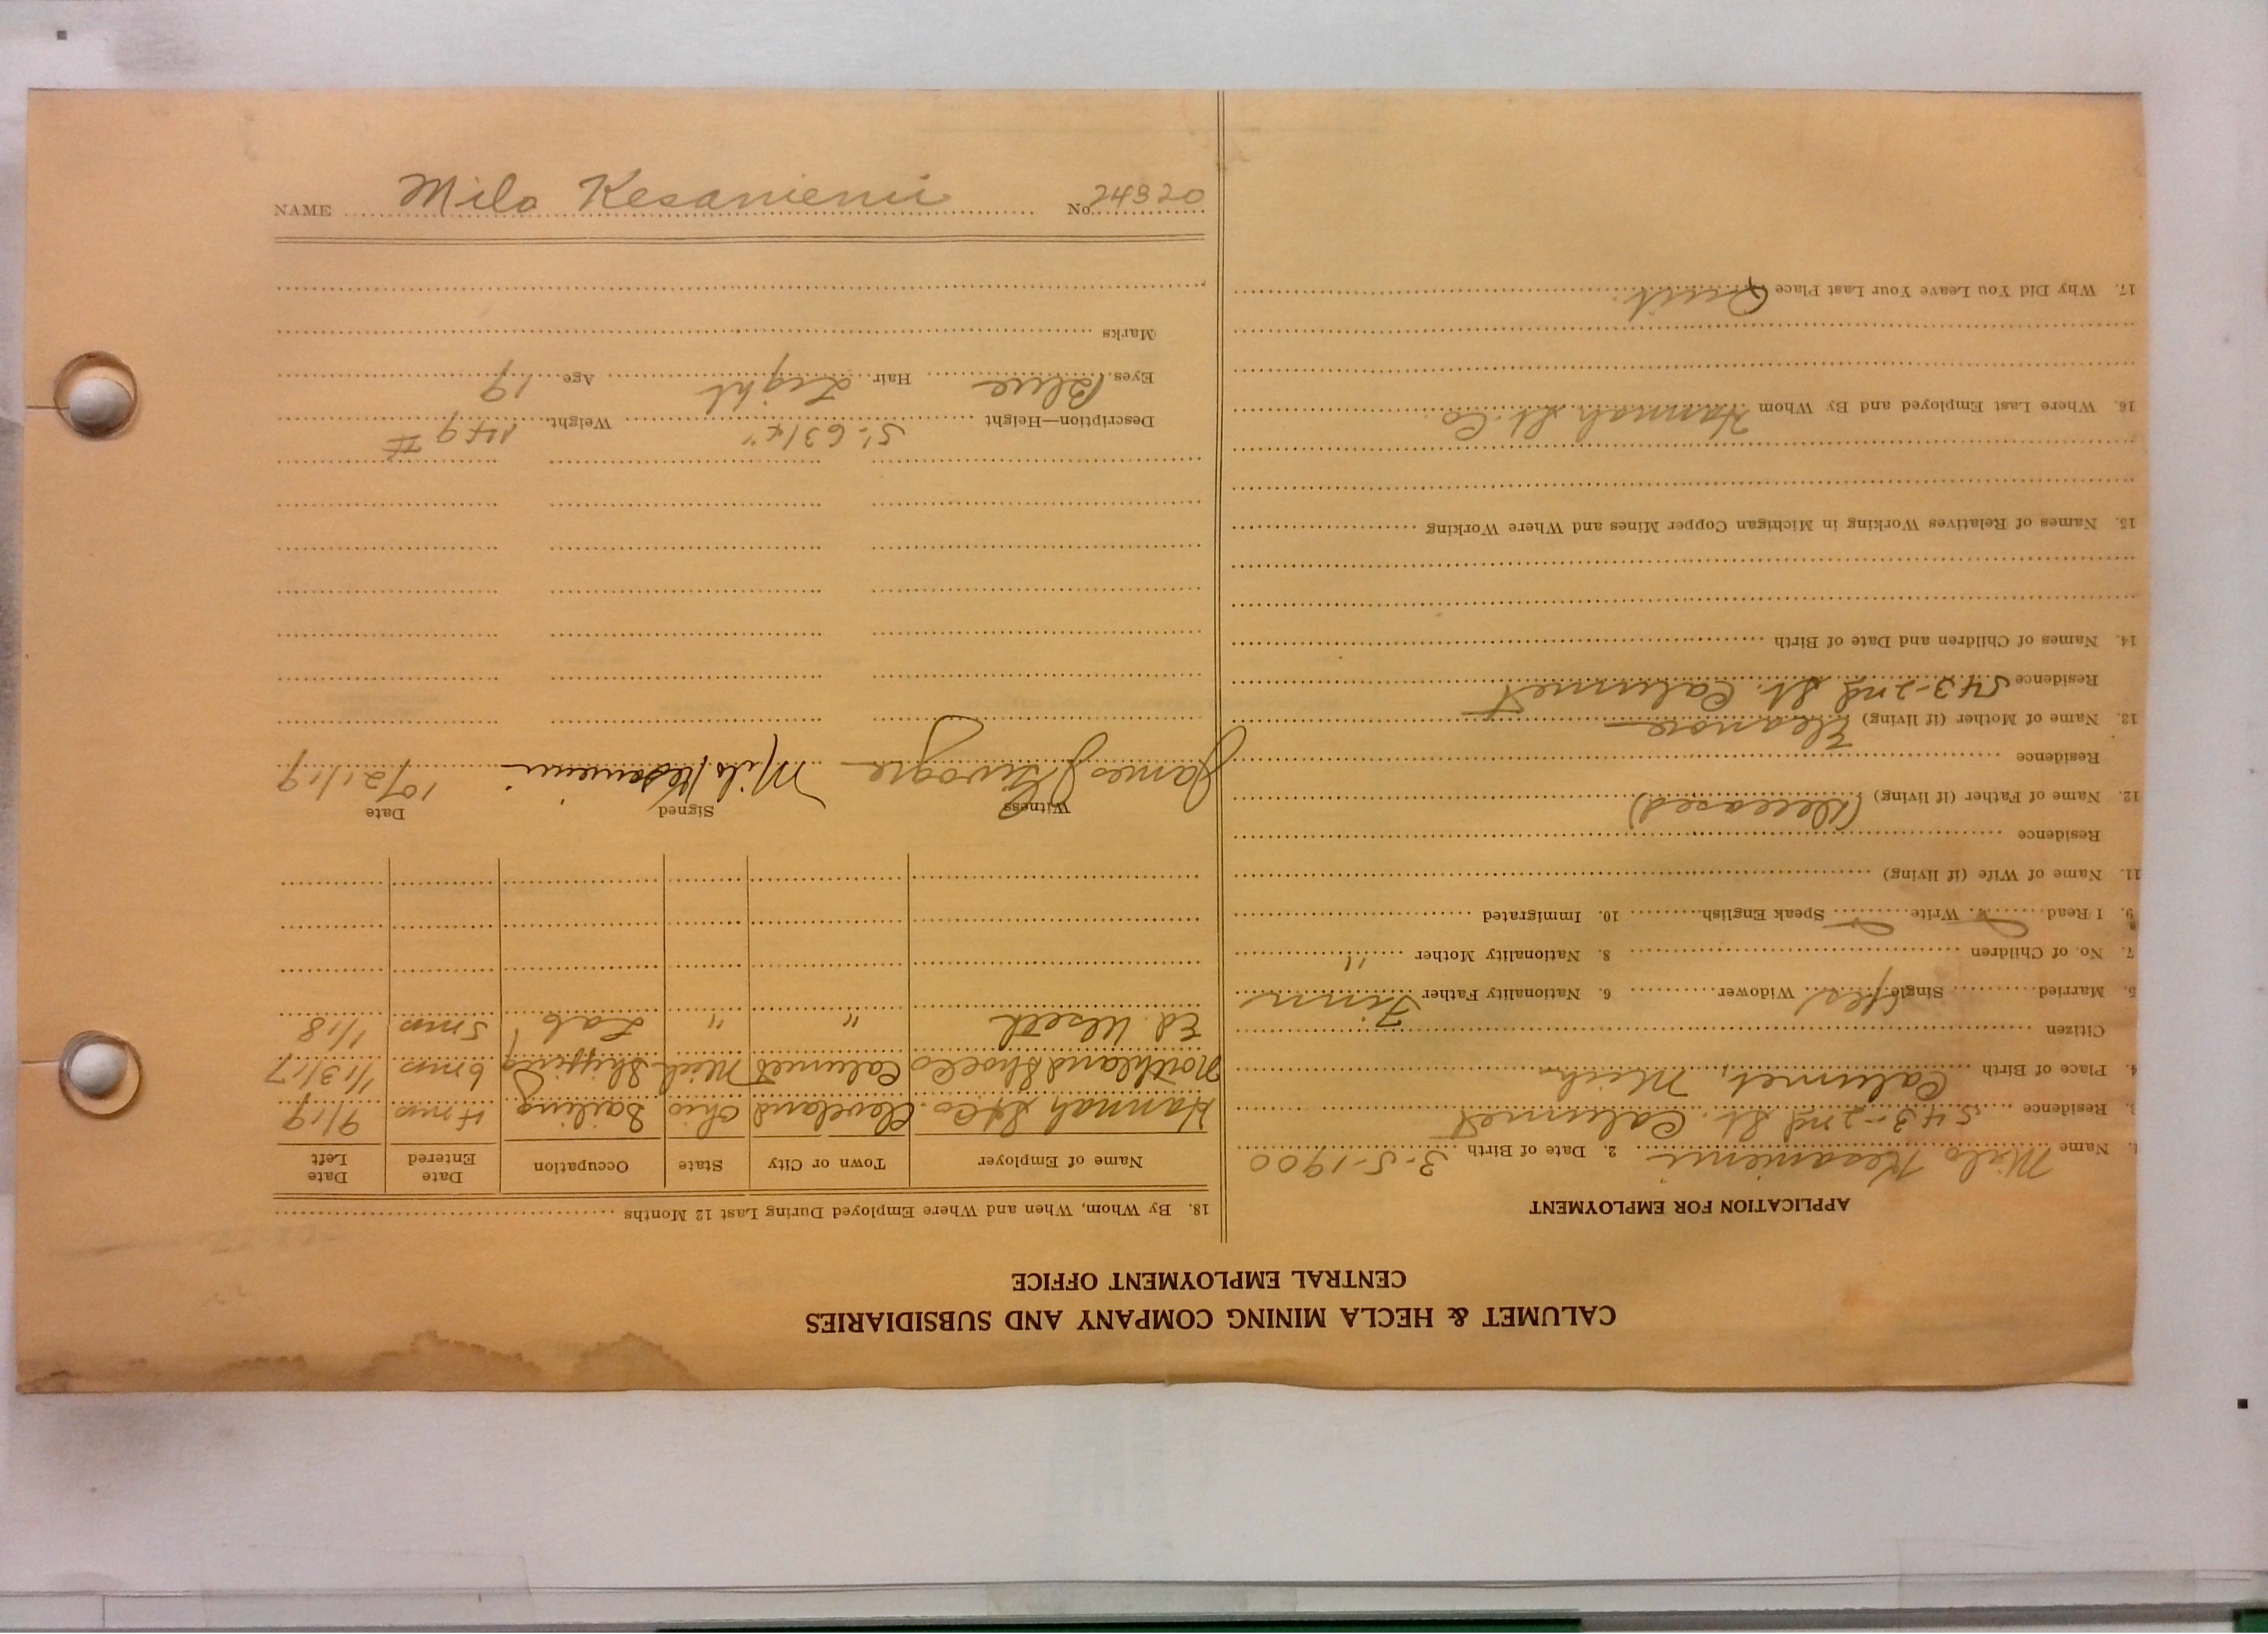 CALUMET & HECLA MINING COMPANY AND SUBSIDIARIES
CENTRAL EMPLOYMENT OFFICE
APPLICATION FOR EMPLOYMENT
1. Name Milo Kesaniemi 2. Date of Birth 3-5-1900
3. Residence 543-2nd St. Calumet
4. Place of Birth Calumet, Mich
Citizen
5. Married Single Yes Widower 6. Nationality Father Finn
7. No. of Children 8. Nationality Mother "
9. I Read Write Speak English 10. Immigrated
11. Name of Wife (if living)
Residence
12. Name of Father (if living) (Deceased)
Residence
13. Name of Mother (if living) Eleanore
Residence 543-2nd St. Calumet
14. Names of Children and Date of Birth
15. Names of Relatives Working in Michigan Copper Mines and Where Working
16. Where Last Employed and By Whom Hannah St. Co.
17. Why Did You Leave Your Last Place Quit.
18. By Whom, When and Where Employed During Last 12 Months
Name of Employer Town or City State Occupation Date Entered Date Left
Hannah St Co. Cleveland Ohio Sailing 4 mos 9/19
Northland Shoe Co Calumet Mich Shipping 6 mos 1/13/17
Ed. Ulseth " " Lab. 5 mos 1/18
Witness Signed Date
James Milo Kesaniemi 10/21/19
Description—Height 5'. 6 3/4" Weight 149 #
Eyes Blue Hair Light Age 19
Marks
NAME Milo Kesaniemi No. 24320